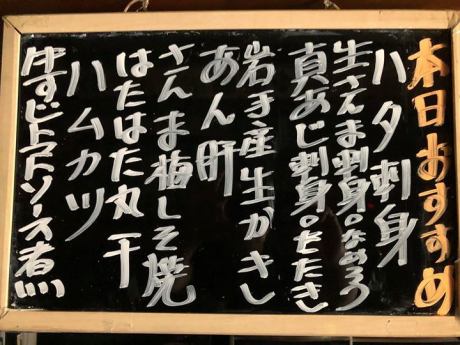 本日おすすめ
ハタ刺身
生さんま刺身。なめろう
真あじ刺身。たたき
岩手産生かき
あん肝
さんま梅しそ焼
はたはた丸干
ハムカツ
牛すじトマトソース煮